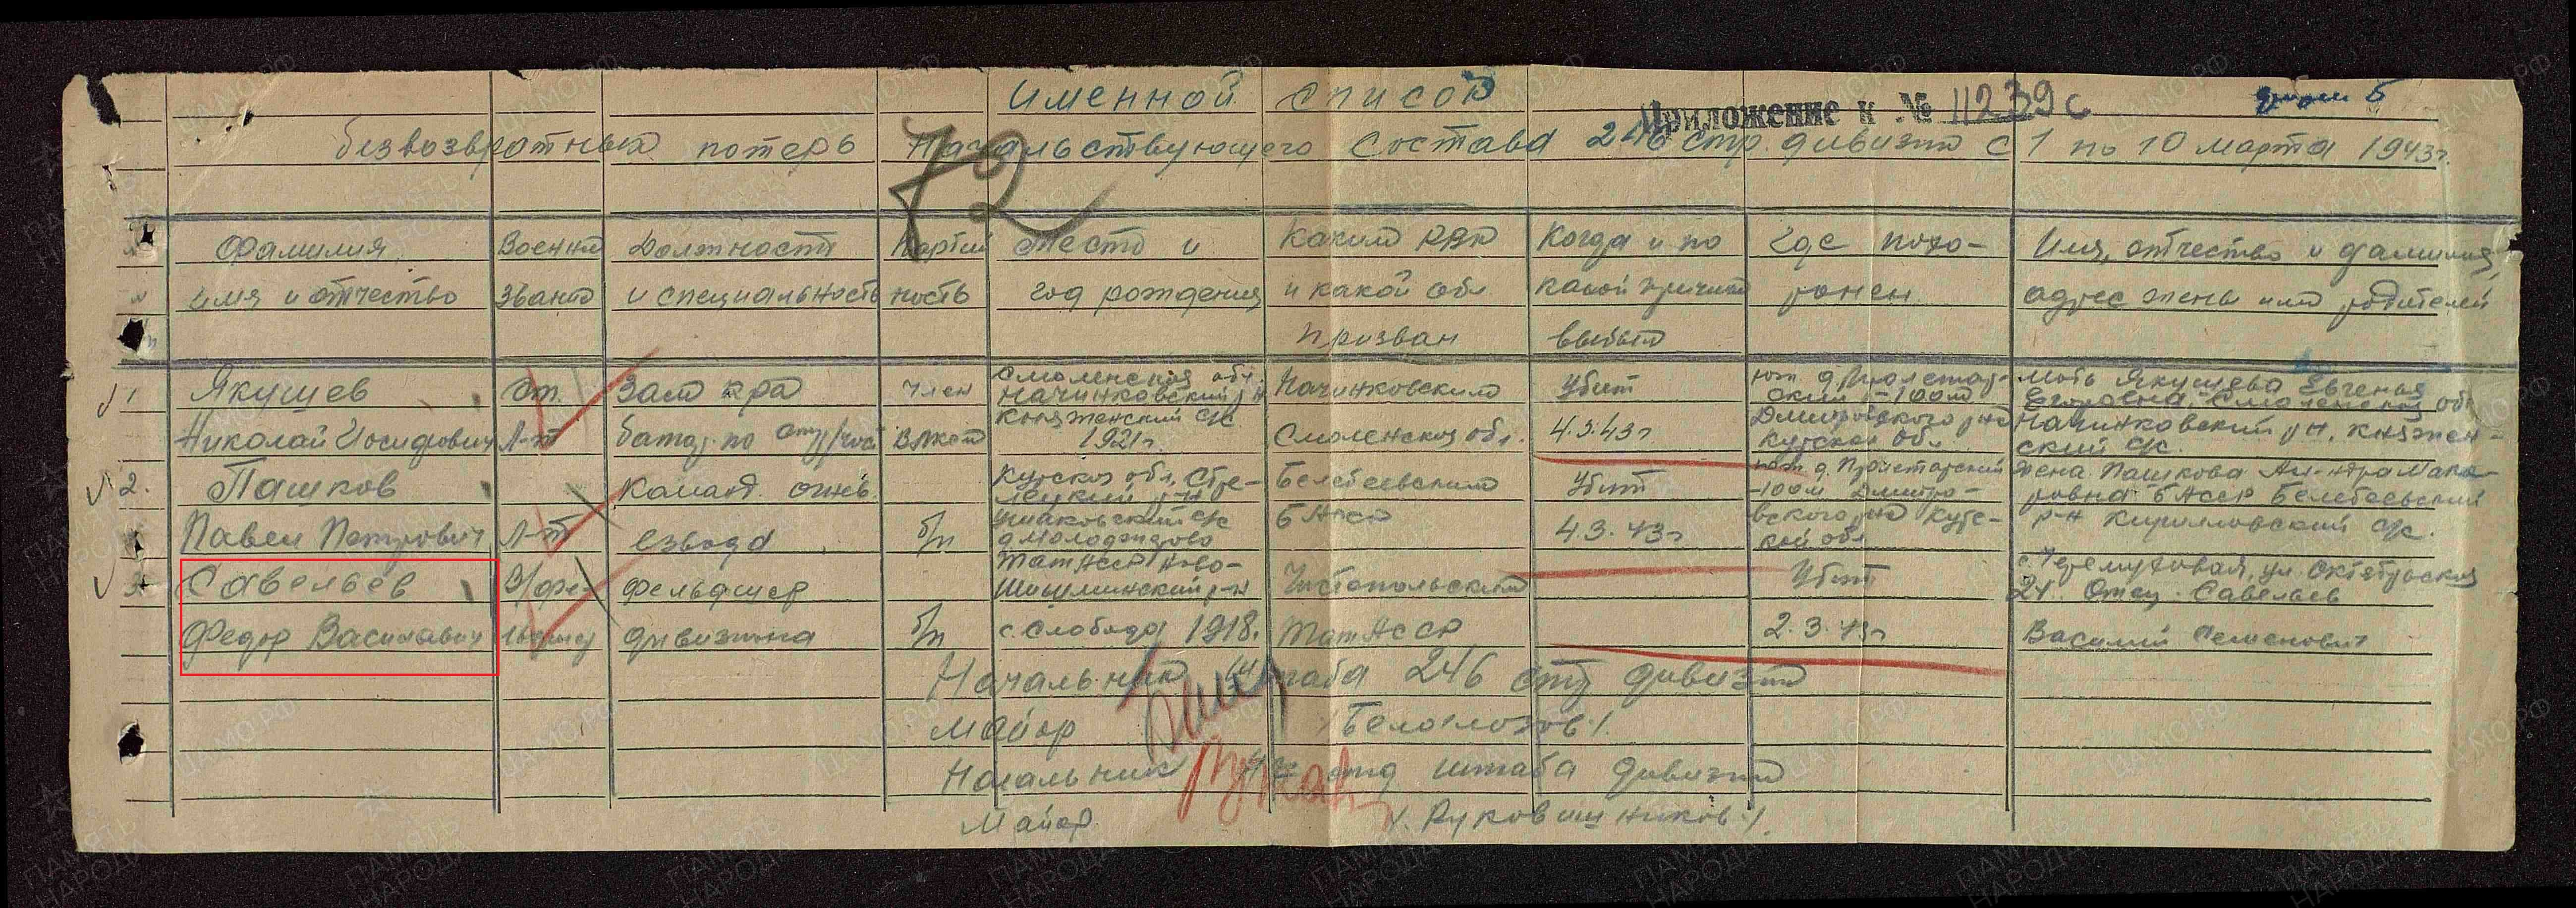 Именной список
Приложение к № 11239с
безвозвратных потерь Начальствующего состава 246 стр. дивизии с 1 по 10 марта 1943г.
72
Фамилия имя и отчество
Военное звание
Должность и специальность
Партийность
Место и год рождения
Каким РВК и какой обл призван
Когда и по какой причине выбыл
Где похоронен
Имя, отчество и фамилия, адрес жены или родителей
1 Якушев
Николай Иосифович
ст. Л-т
Зам к-ра
батар. по стр/части
член ВЛКСМ
Смоленская обл.
Починковский р-н
Княженский с/с
1921г.
Починковским
Смоленской обл.
Убит
4.3.43г
юж. д. Пролетар-
ский - 100м
Дмитровского р-на
Курская обл
мать Якушева Евгенья
Егоровна, Смоленская обл
Починковский р-н, Княжен-
ский с/с.
2. Пашков
Павел Петрович
Л-т
Команд. огнев.
взвода
б/п
Курская обл, Стре-
лецкий р-н
с/с
д Молодежово
Белебеевским
БАССР
Убит
4.3.43г
юж. д. Пролетарский
-100м. Дмитро-
вского р-на Курс-
кой обл
жена Пашкова Ал-ндра Мака-
ровна БАССР Белебеевский
р-н Кирилловский с/с.
3. Савельев
Федор Васильевич
В/фе-
льдшер
Фельдшер
дивизиона
б/п
ТатАССР Ново-
Шешминский р-н
с. Слобода 1918.
Чистопольским
ТатАССР
Убит
2.3.43г
с. Черемуховая, ул. Октябрьская
21. Отец. Савельев
Василий Семенович
Начальник штаба 246 стр дивизии
Майор /Белоглазов/.
Начальник отд штаба дивизии
Майор /Рукавишников/.
ПАМЯТЬ НАРОДА
ЦАМО.РФ